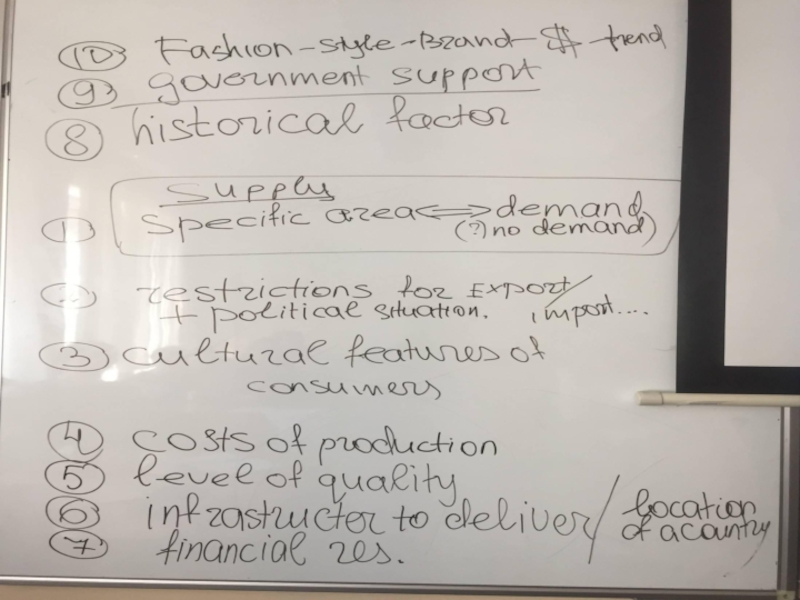 10 Fashion-style-Brand-$-trend
9 government support
8 historical factor
Supply
1 specific area <=> demand
(?) no demand)
2 restrictions for Export/
+ political situation. import....
3 cultural features of
consumers
4 costs of production
5 level of quality
6 infrastructor to deliver / location
of a country
7 financial res.